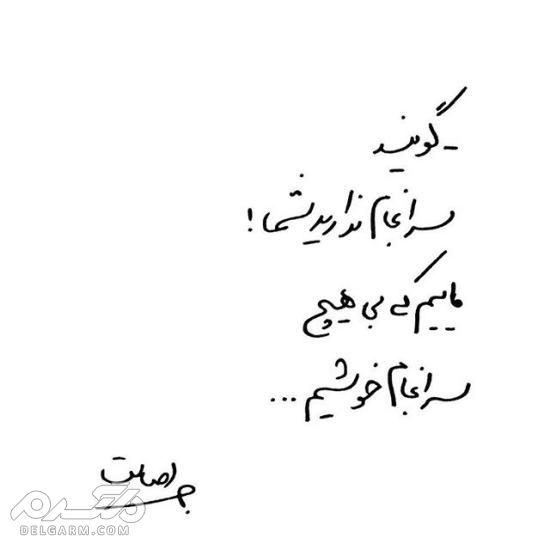 - گویند
سرانجام ندارید شما !
ماییم که بی هیچ
سرانجام خوشیم ...
دلگرم
DELGARM.COM